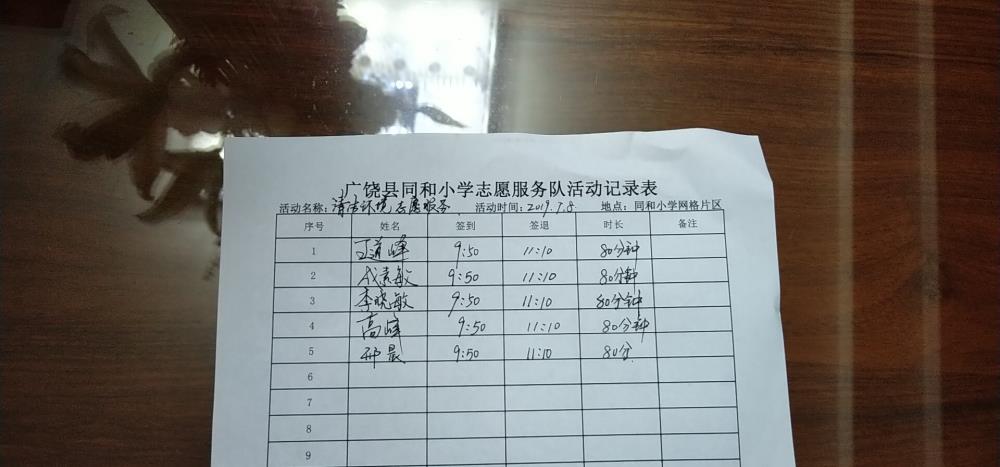 广饶县同和小学志愿服务队活动记录表
活动名称：清洁环境志愿服务 活动时间：2019.7.8 地点：同和小学网格片区
序号 姓名 签到 签退 时长 备注
1 王道峰 9:50 11:10 80分钟
2 成素敏 9:50 11:10 80分钟
3 李晓敏 9:50 11:10 80分钟
4 高峰 9:50 11:10 80分钟
5 晨 9:50 11:10 80分
6
7
8
9